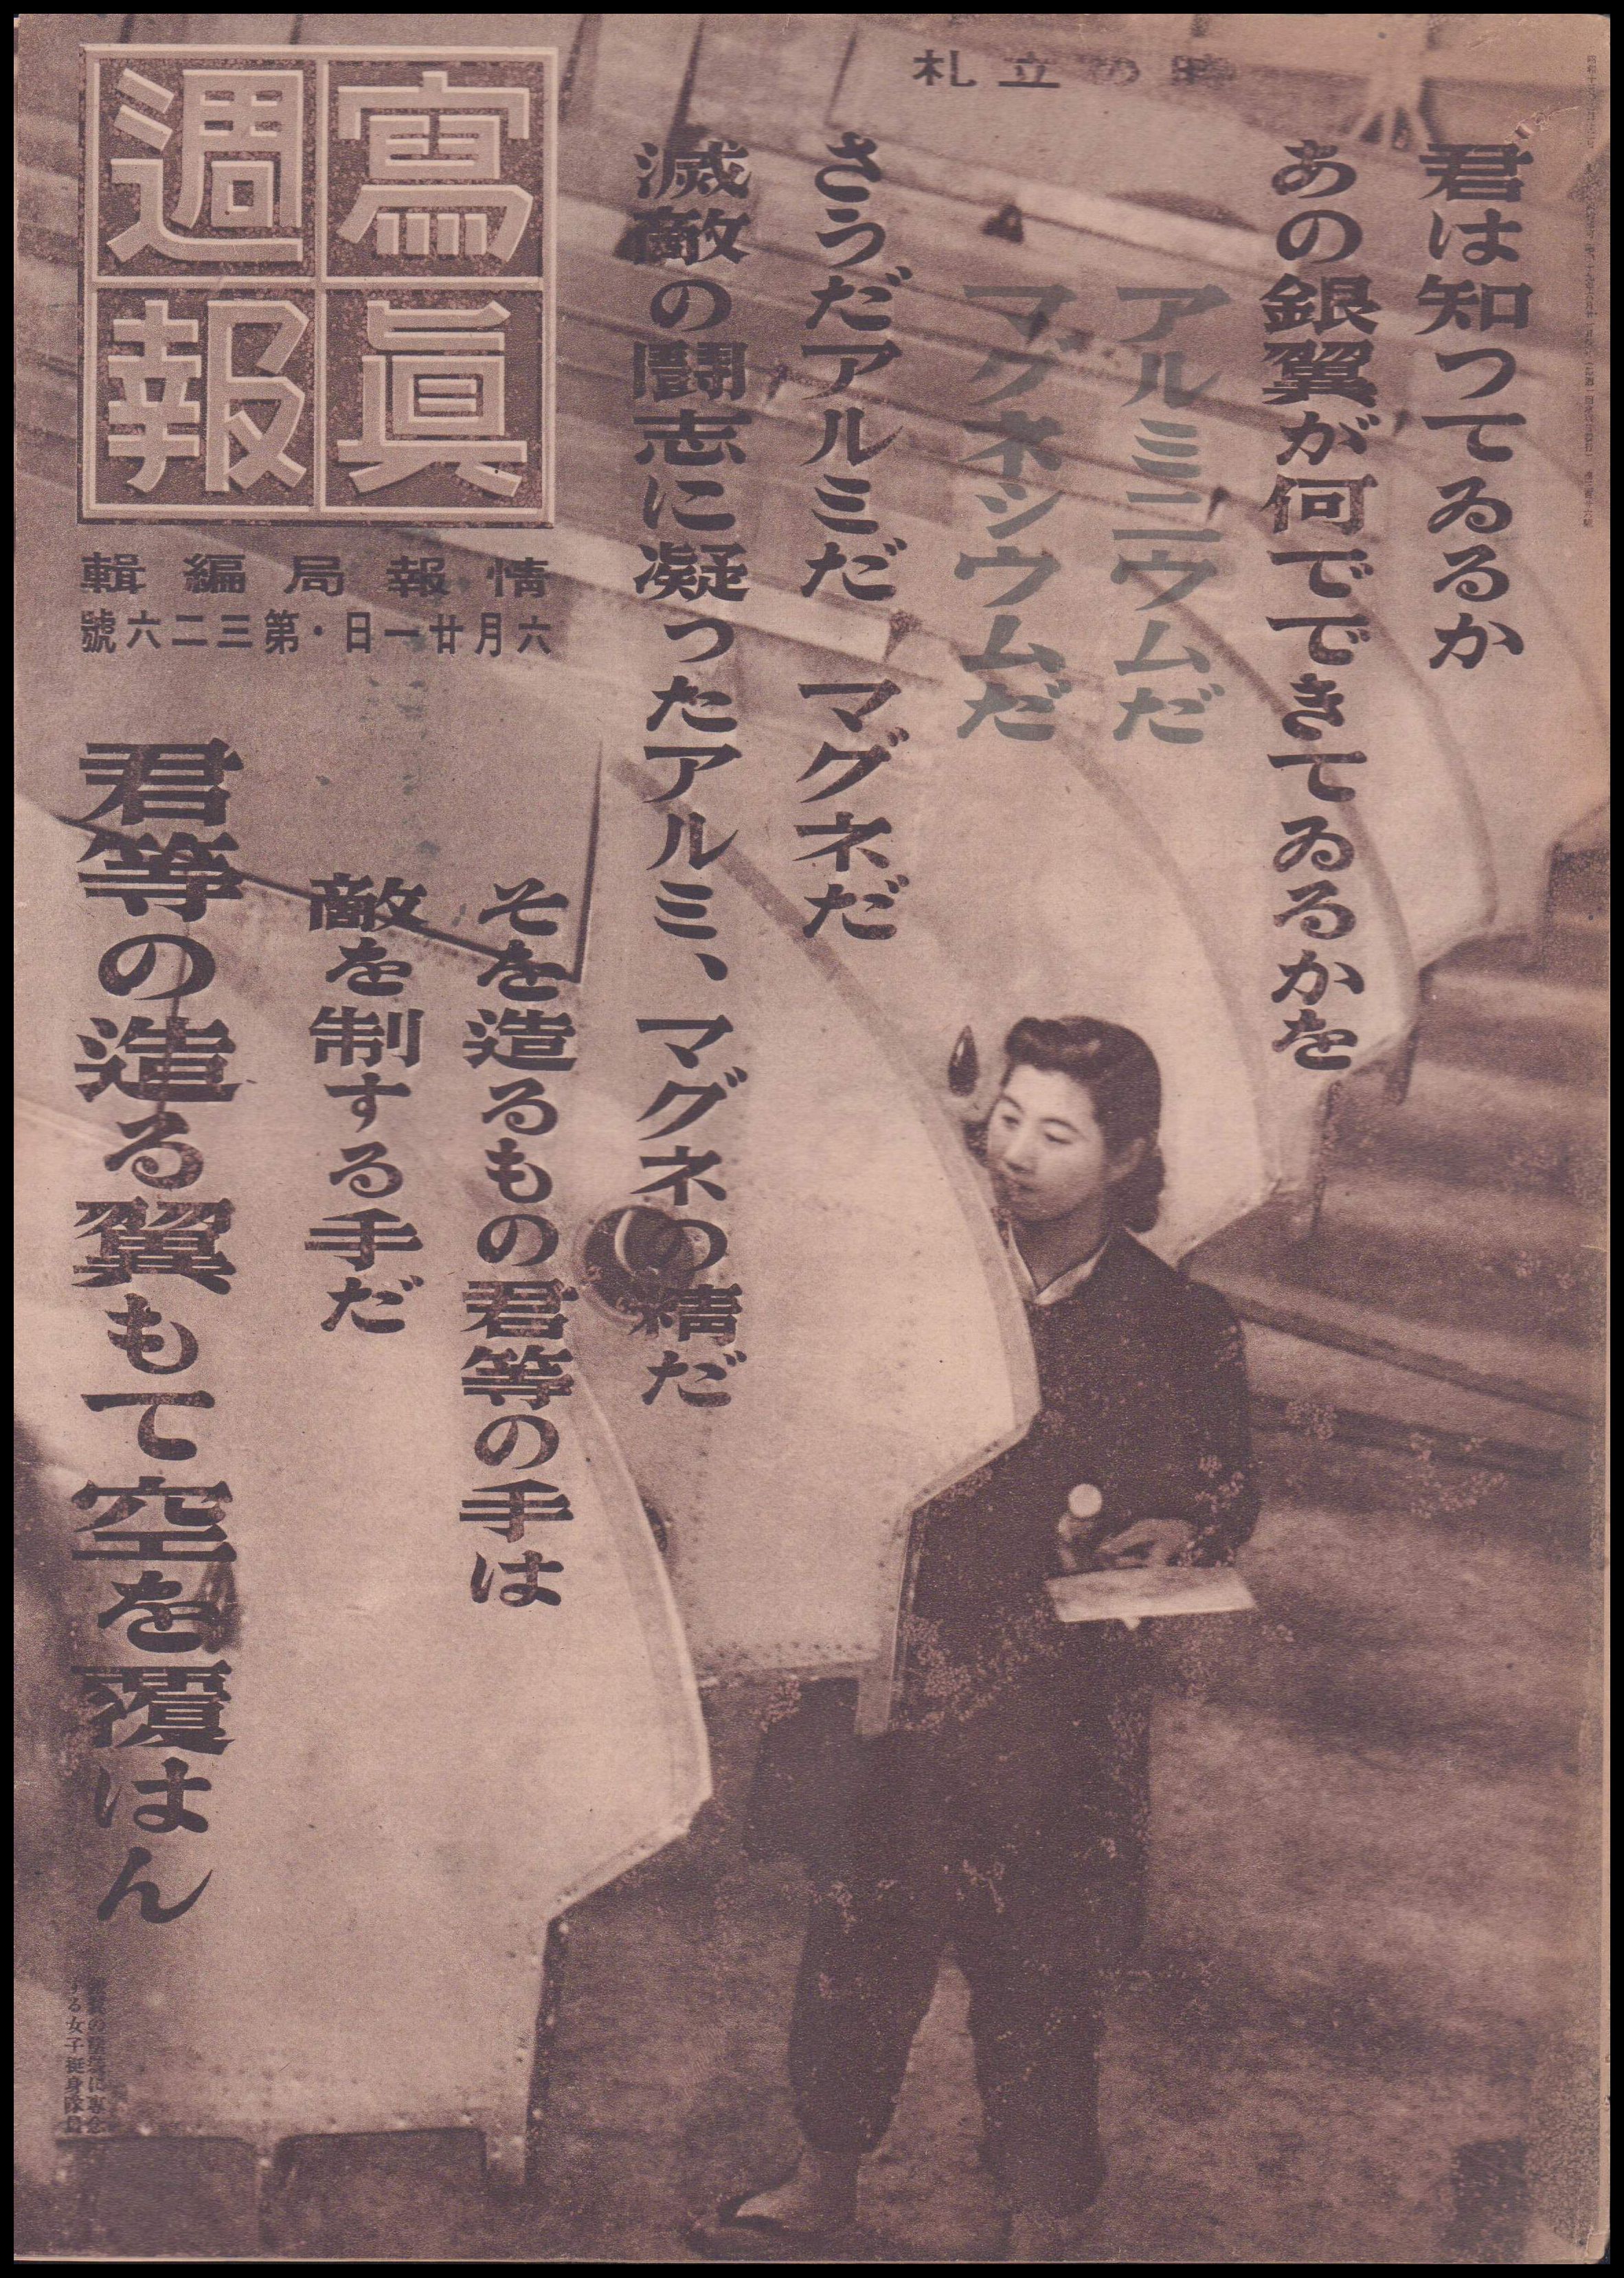 時の立札
君は知つてゐるか
あの銀翼が何でできてゐるかを
アルミニウムだ
マグネシウムだ
さうだアルミだ マグネだ
滅敵の闘志に凝つたアルミ、マグネの精だ
そを造るもの君等の手は
敵を制する手だ
君等の造る翼もて空を覆はん
寫眞
週報
情報局編輯
六月廿一日・第三二六號
する女子挺身隊員